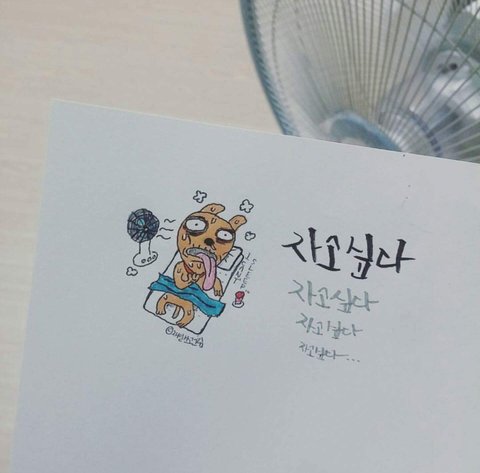 SLEEP!
자고싶다
자고싶다
자고싶다
자고싶다...